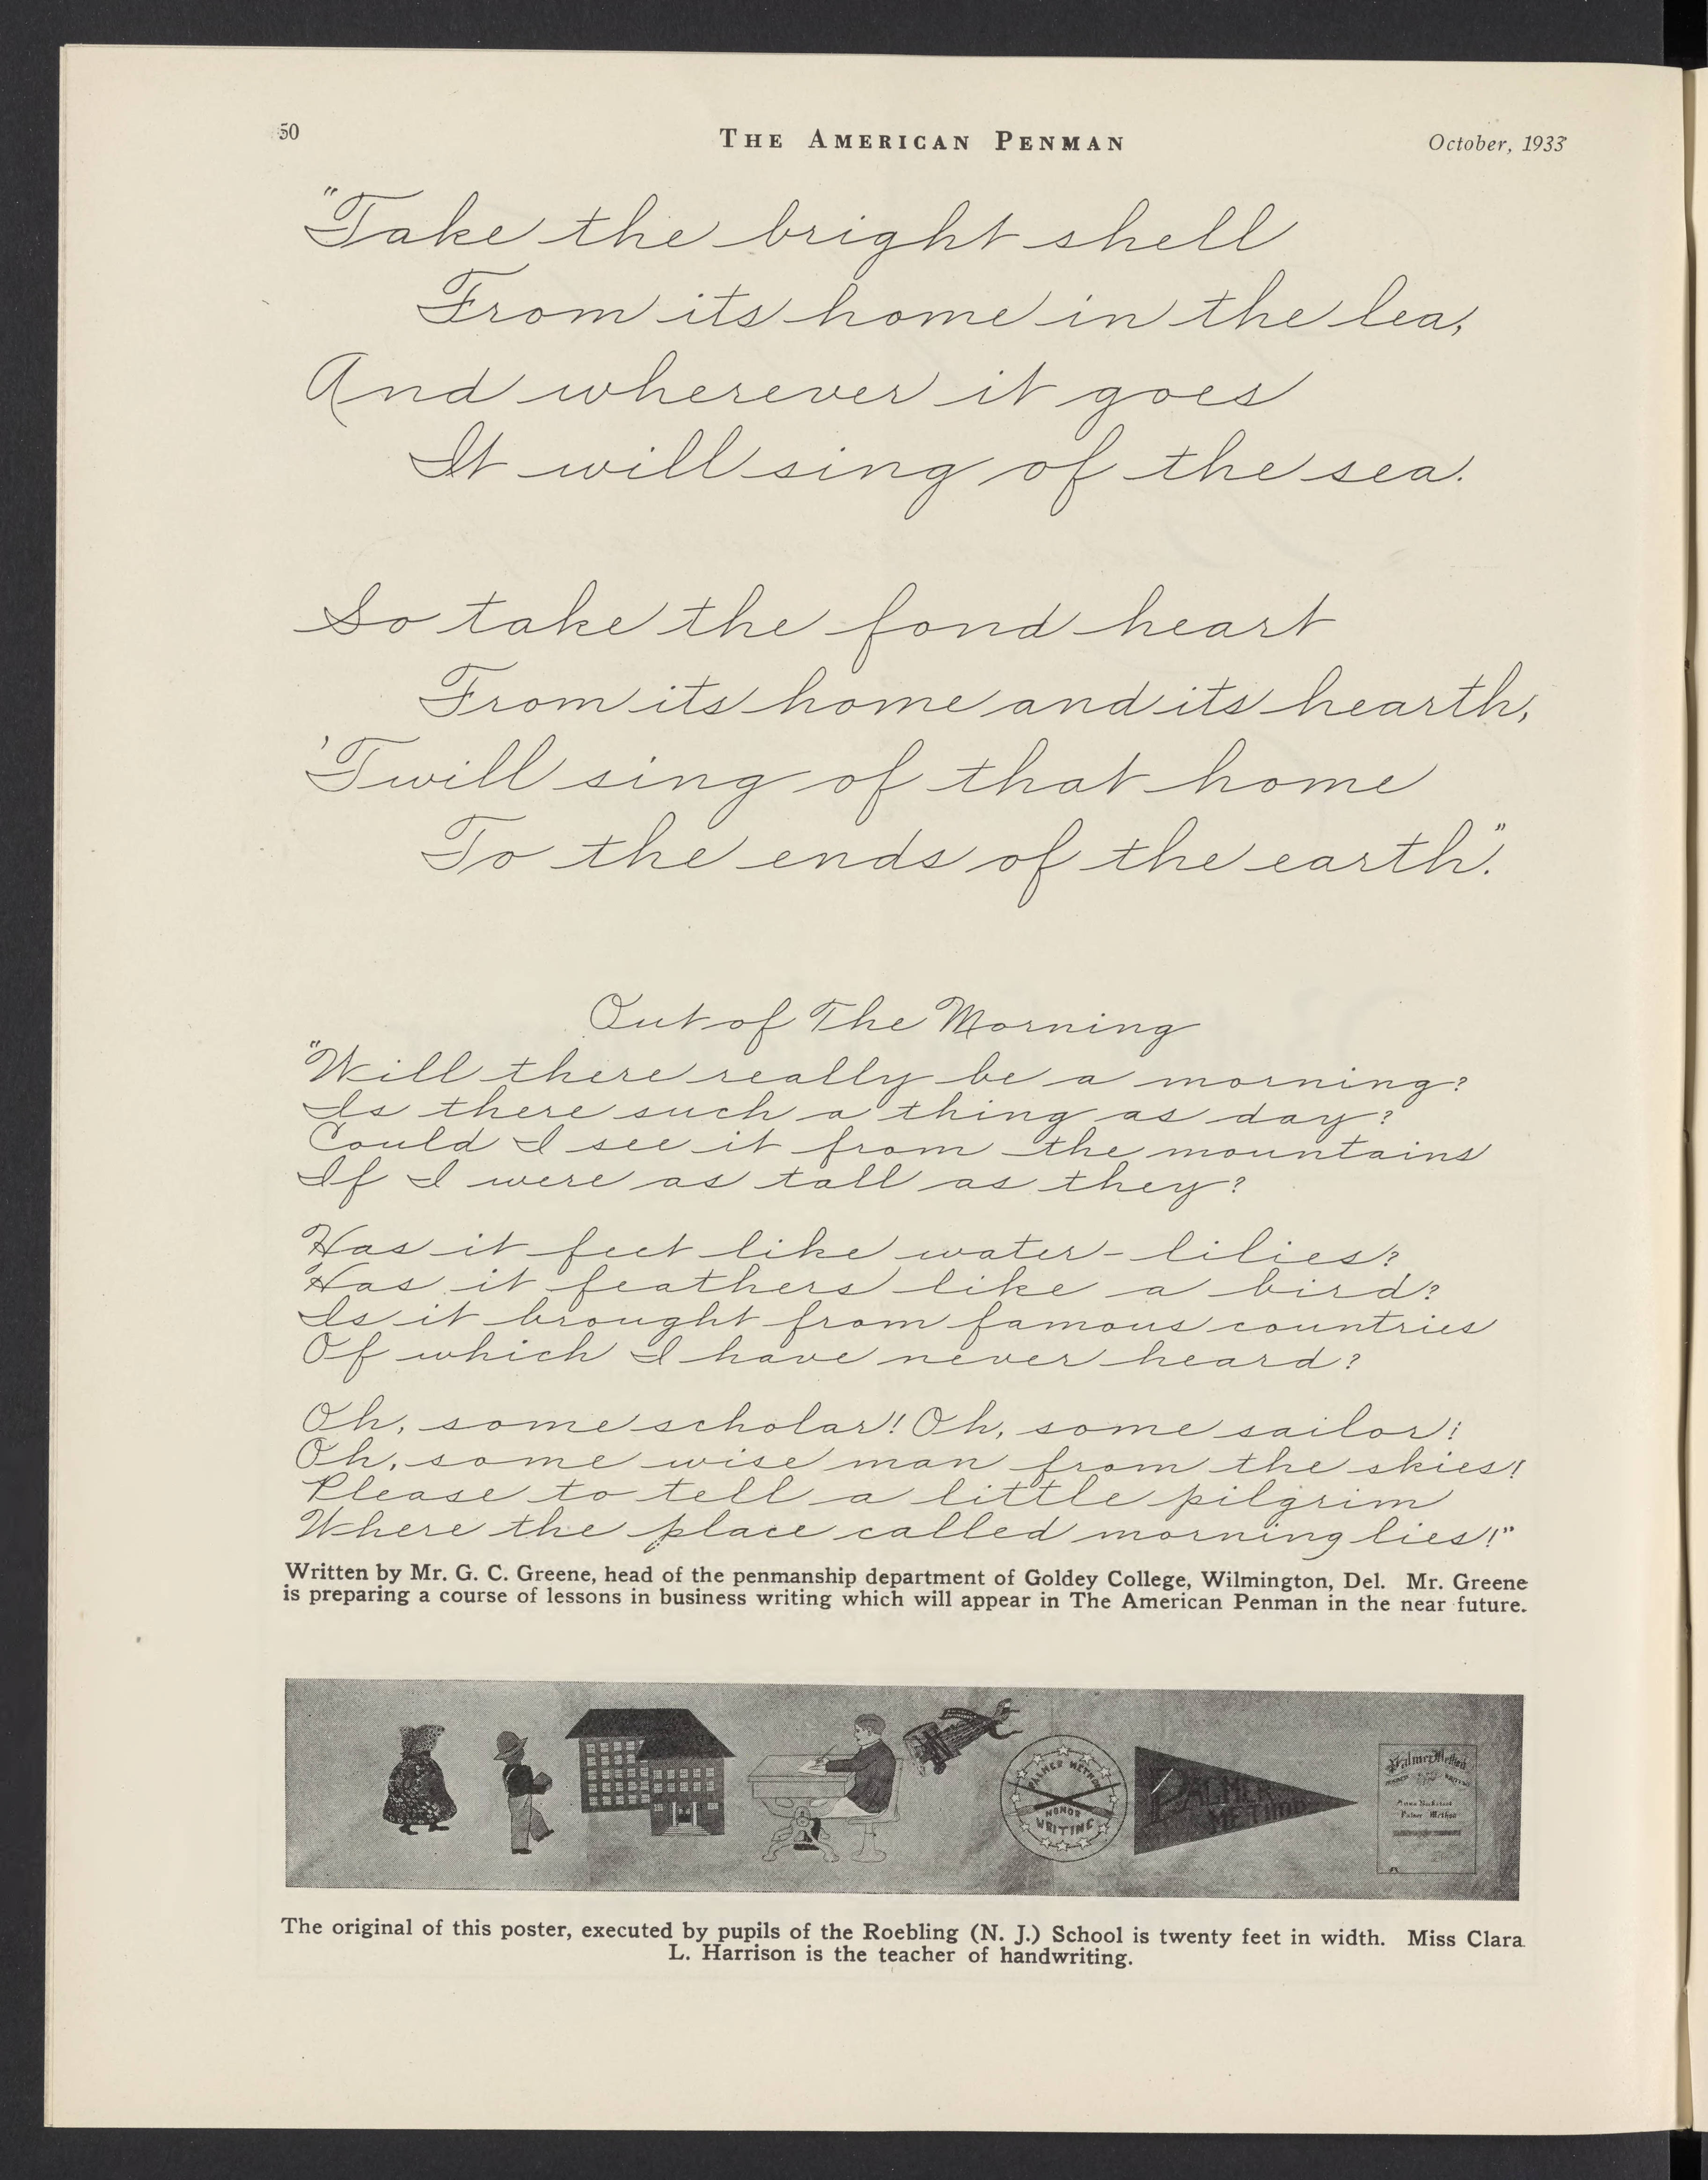 50
THE AMERICAN PENMAN
October, 1933
"Take the bright shell
From its home in the lea,
And wherever it goes
It will sing of the sea.
So take the fond heart
From its home and its hearth,
'Twill sing of that home
To the ends of the earth."
Out of The Morning
"Will there really be a morning?
Is there such a thing as day?
Could I see it from the mountains
If I were as tall as they?
Has it feet like water-lilies?
Has it feathers like a bird?
Is it brought from famous countries
Of which I have never heard?
Oh, some scholar! Oh, some sailor!
Oh, some wise man from the skies!
Please to tell a little pilgrim
Where the place called morning lies!"
Written by Mr. G. C. Greene, head of the penmanship department of Goldey College, Wilmington, Del. Mr. Greene
is preparing a course of lessons in business writing which will appear in The American Penman in the near future.
PALMER METHOD
HONOR
WRITING
PALMER
METHOD
Palmer Method
Palmer Method
The original of this poster, executed by pupils of the Roebling (N. J.) School is twenty feet in width. Miss Clara
L. Harrison is the teacher of handwriting.